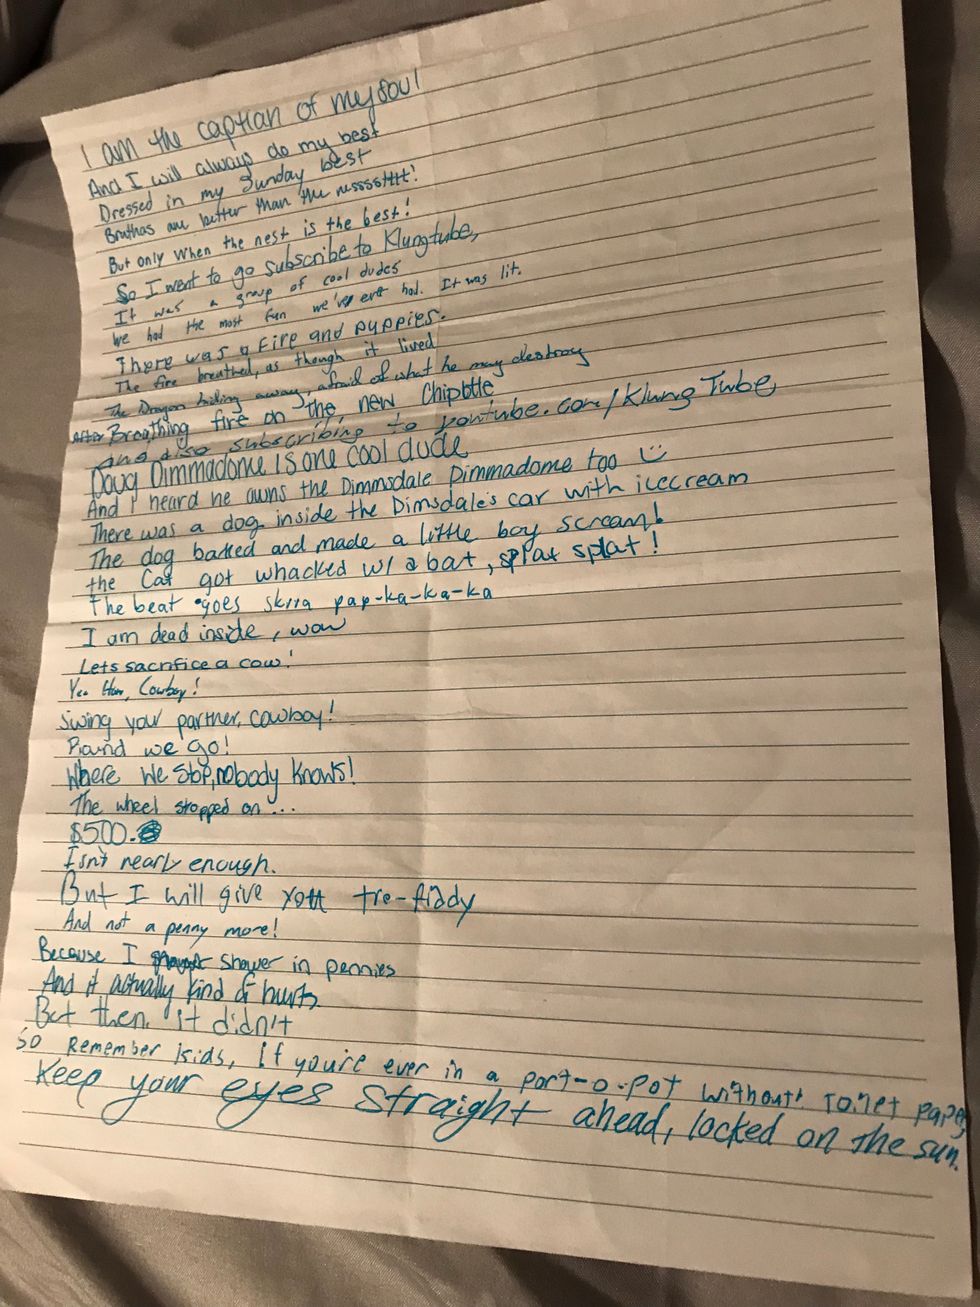 I am the captian of my soul
And I will always do my best
Dressed in my Sunday best
Bruthas are better than the ressssttt!
But only when the nest is the best!
So I went to go subscribe to Klungtube,
It was a group of cool dudes
We had the most fun we've ever had. It was lit.
There was a fire and puppies.
The fire breathed, as though it lived
The Dragon hiding away, afraid of what he may destroy
After Breathing fire on the new Chipotle
and also subscribing to youtube.com/KlungTube,
Doug Dimmadome is one cool dude
And I heard he owns the Dimmsdale Dimmadome too
There was a dog inside the Dimsdale's car with icecream
The dog barked and made a little boy scream!
the Cat got whacked w/ a bat, splat splat!
The beat goes skrra pap-ka-ka-ka
I am dead inside, wow
Lets sacrifice a cow!
Yee Haw, Cowboy!
Swing your partner, cowboy!
Round we go!
Where we stop, nobody knows!
The wheel stopped on...
$500.
Isn't nearly enough.
But I will give you tre-fiddy
And not a penny more!
Because I shower in pennies
And it actually kind of hurts
But then, it didn't
So Remember kids, If you're ever in a port-o-pot without toilet paper,
Keep your eyes straight ahead, locked on the sun.